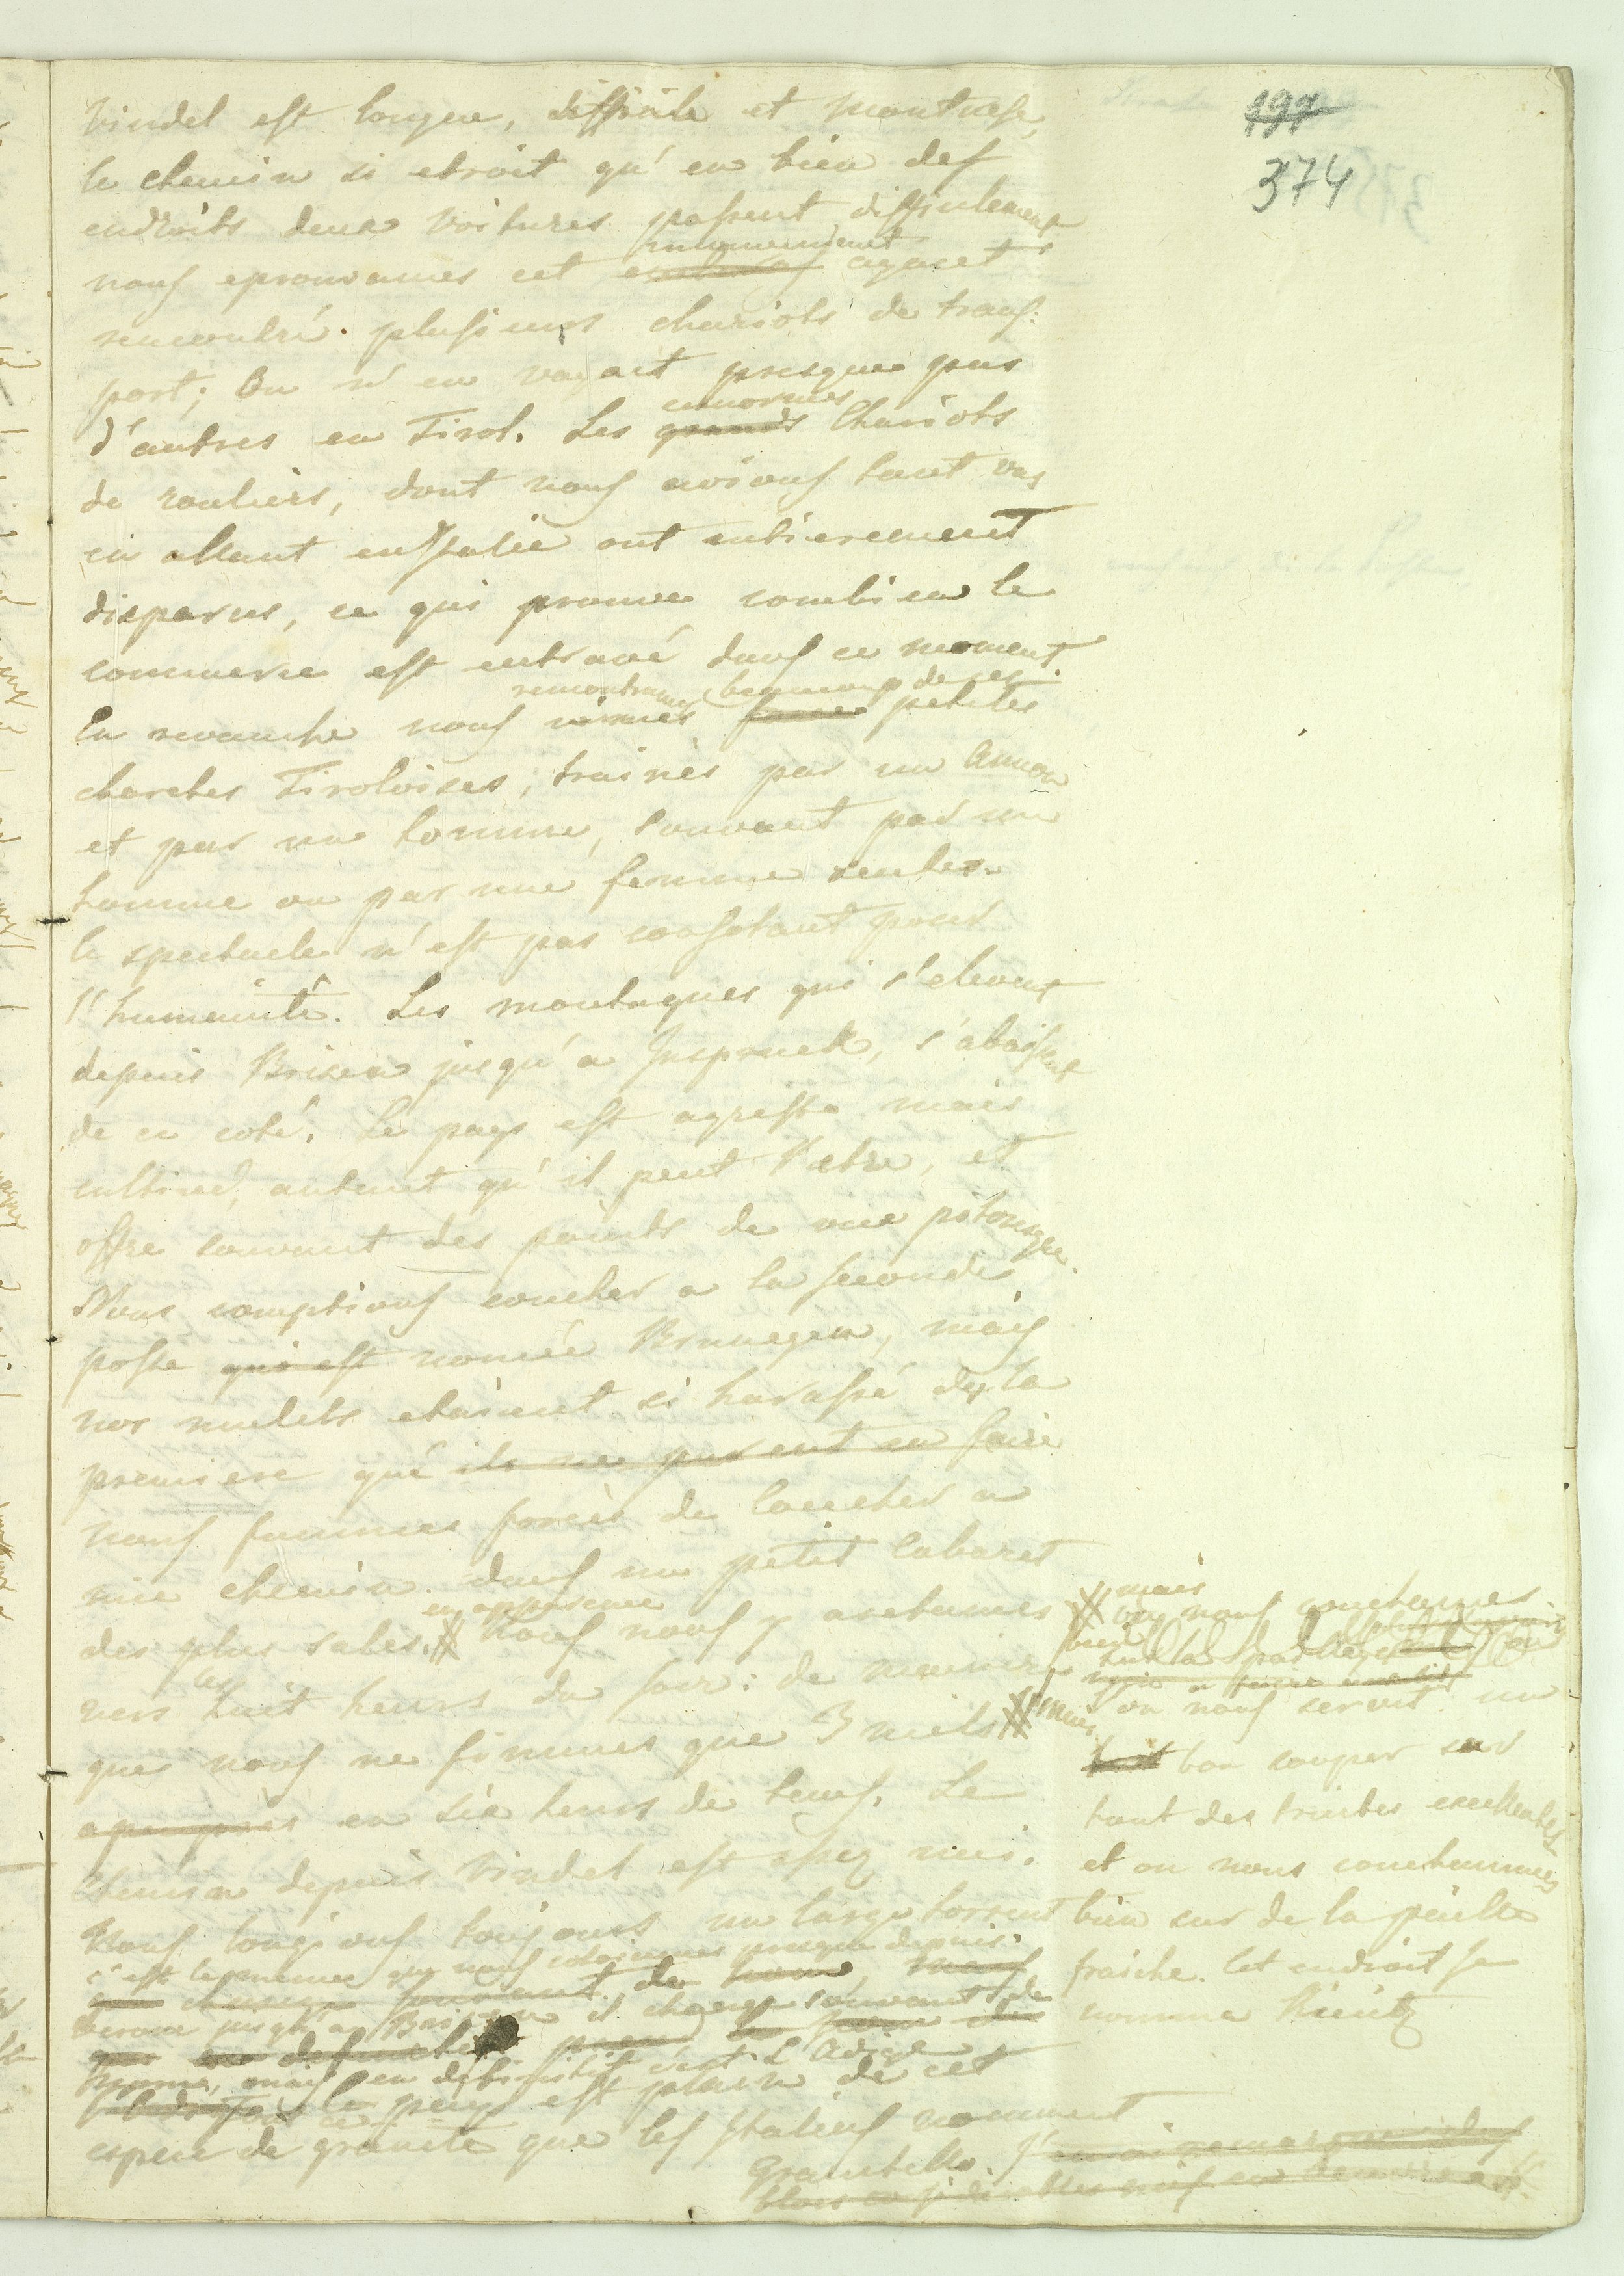 197
374
Vindel est longue, difficile et montuese,
le chemin si etroit qu'en bien des
endroits deux voitures passent difficilement
nous eprouvames cet inconvenient ayant
rencontré plusieurs chariots de trans:
port; On n'en voyait presque pas
d'autres en Tirol. Les grands enormes Chariots
de rouliers, dont nous avions tant vus
en allant en Italie ont entierement
disparus, ce qui prouve combien le
commerce est entravé dans ce moment.
En revanche nous vimes rencontrames beaucoup de ces petites
charettes Tiroloises, trainés par un Annon
et par un homme, souvant par un
homme ou par une femme seules.
le spectacle n'est pas consolant pour
l'humainité. Les montagnes qui s'elevent
depuis Brixen jusqu'a Inspruck, s'abaissent
de ce coté. Le pays est agreste mais
cultivé, autant qu'il peut l'etre, et
offre souvant des points de vue pitoresque.
Nous comptions coucher a la seconde
poste qui est nomée Brunegen, mais
nos mulets etaient si harassé de la
premiere que ils ne purent en faire
nous fummes forcés de Coucher a
mie chemin dans un petit Cabaret
des plus sales en apparence # Nous nous y arretames
vers les huit heurs du soir: de maniere
que nous ne fimmes que 3 miels #
apeupres en six heurs de tems. Le
Chemin depuis Vindel est assez uni.
Nous longions toujours un large torrent
c'est le meme que nous cotoiames presque depuis
Verone jusqu'a Brixen il change souvant de
nomme, mais en definitif c'est L'Adige
le pays est plain de cet
espece de granite que les Italiens nomment
Granitello.
# mais
on nous servit un
bon souper sur
tout des truites excellentes
et on nous couchammes
bien sur de la paille
fraiche. Cet endroit se
nomme Kientz